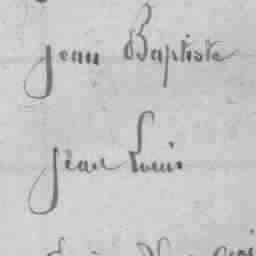 Jean Baptiste
Jean Louis